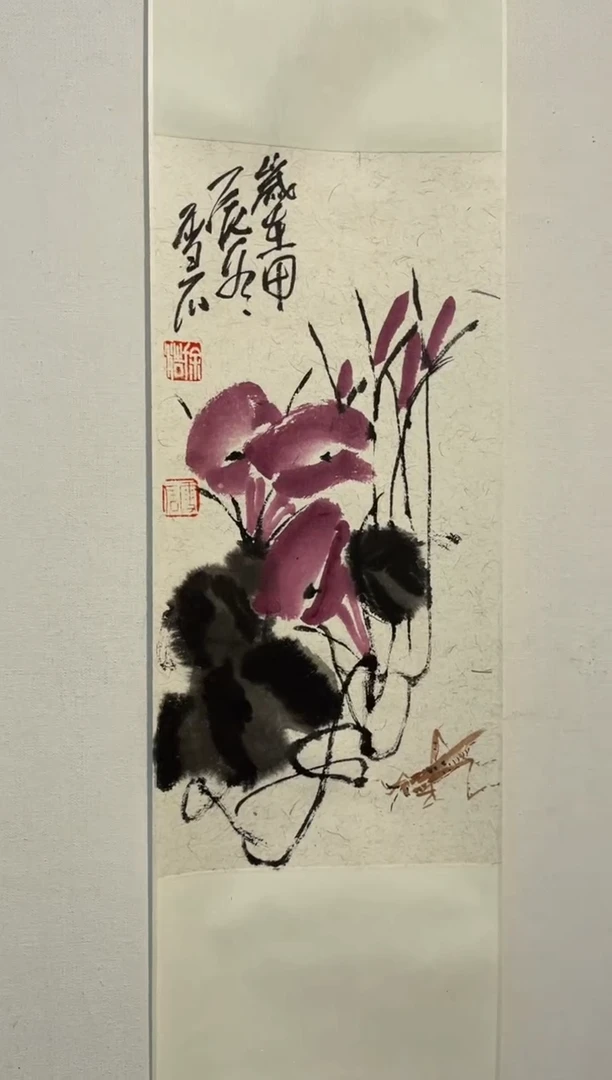 歲在甲
辰冬
雪石